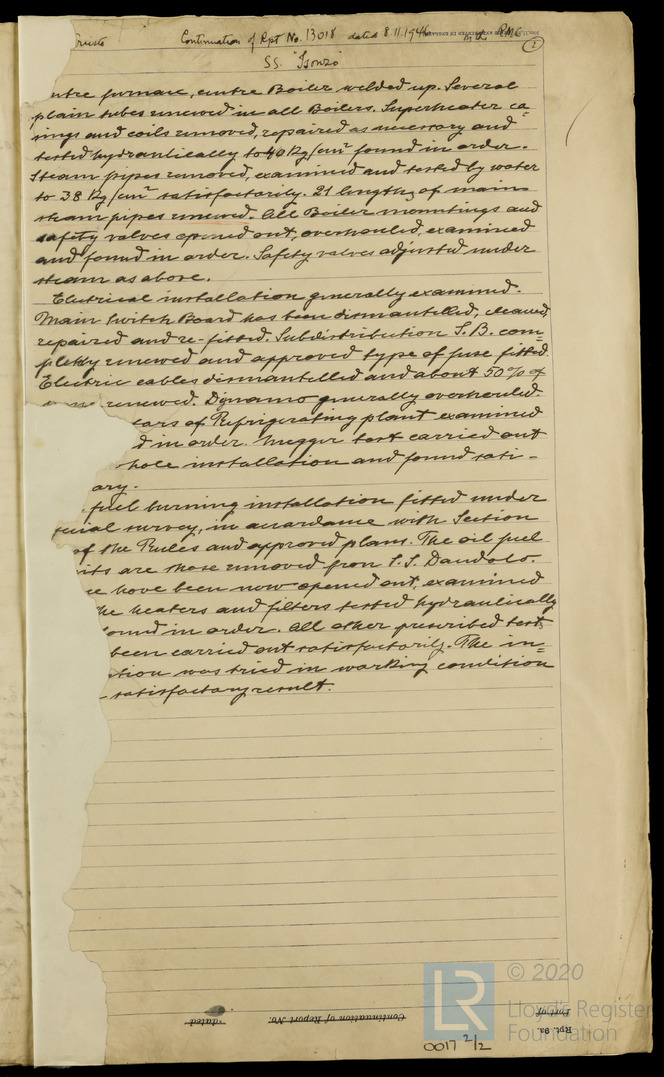 Trieste Continuation of Rpt No. 13018 dated 8.11.1946
2
SS. "Isonzo"
ntre furnace, centre Boiler welded up. Several
plain tubes renewed in all Boilers. Superheater ca=
sings and coils removed, repaired as necessary and
tested hydraulically to 40 Kg/cm² found in order.
Steam pipes removed, examined and tested by water
to 38 Kg/cm² satisfactorily. 21 lengths of main
steam pipes renewed. All Boiler mountings and
safety valves opened out, overhauled, examined
and found in order. Safety valves adjusted under
steam as above.
Electrical installation generally examined.
Main Switch Board has been dismantelled, cleaned
repaired and re-fitted. Subdistribution S.B. com=
pletly renewed and approved type of fuse fitted.
Electric cables dismantelled and about 50% of
renewed. Dynamo generally overhauled.
tors of Refrigerating plant examined
d in order. Megger test carried out
hole installation and found sati-
ary.
fuel burning installation fitted under
ecial survey, in accordance with Section
of the Rules and approved plans. The oil fuel
its are those removed from S.S. Dandolo.
se have been now opened out, examined
he heaters and filters tested hydraulically
found in order. All other prescribed test
been carried out satisfactorily. The in=
ation was tried in working condition
satisfactory result.
© 2020
LR
Lloyd's Register
Foundation
Rpt. 9a.
Port of
Continuation of Report No.
dated
0017 2/2